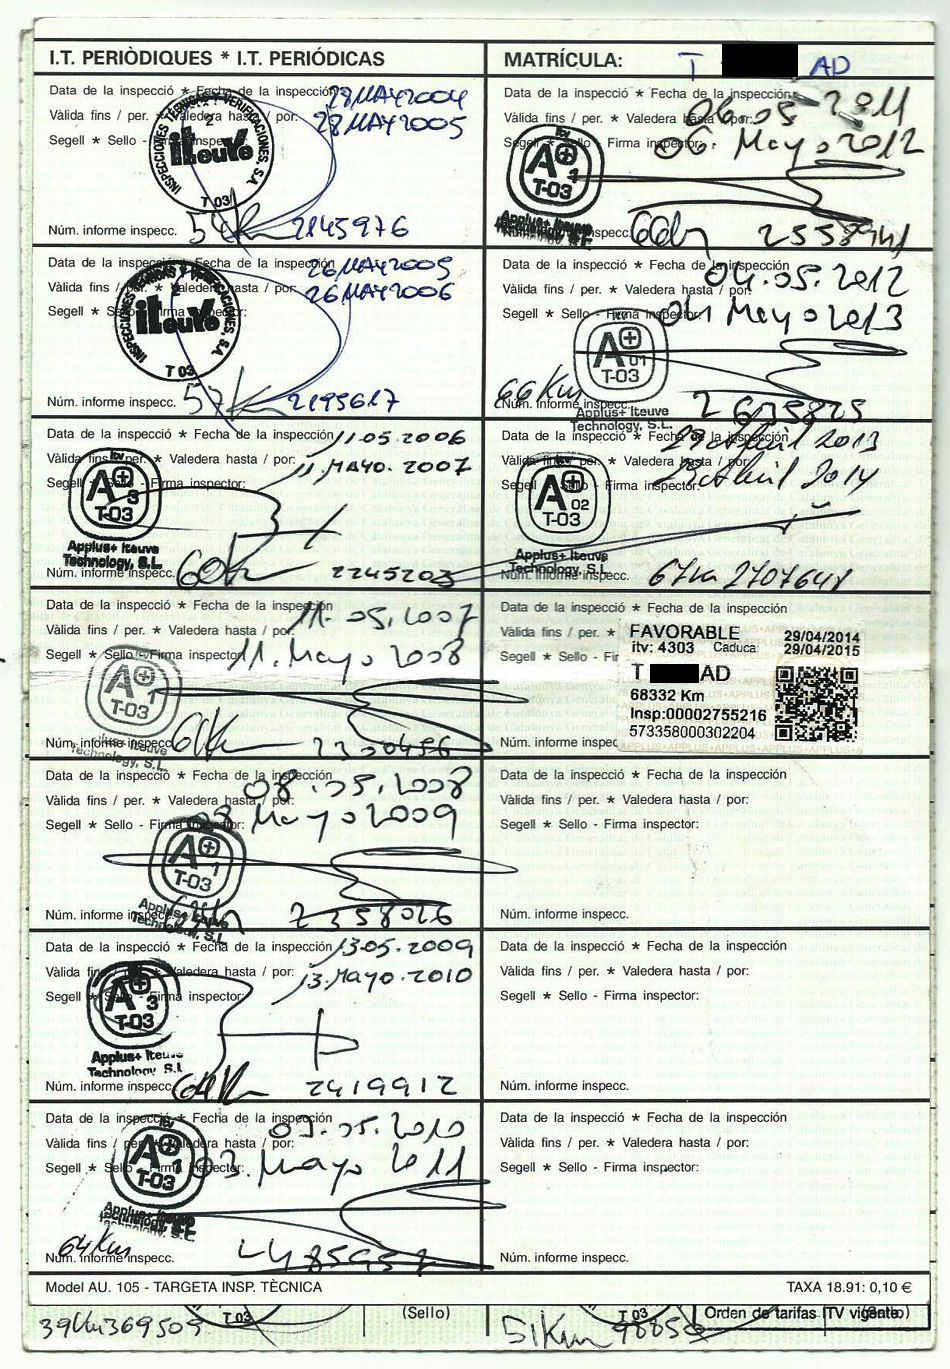 I.T. PERIÒDIQUES * I.T. PERIÓDICAS
Data de la inspecció * Fecha de la inspección 28 MAY 2004
Vàlida fins / per. * Valedera hasta / por: 28 MAY 2005
Segell * Sello - Firma inspector:
INSPECCIONES TÉCNICAS Y VERIFICACIONES, S.A.
iteuve
T 03
Núm. informe inspecc. 2145976
Data de la inspecció * Fecha de la inspección 26 MAY 2005
Vàlida fins / per. * Valedera hasta / por: 26 MAY 2006
Segell * Sello - Firma inspector:
INSPECCIONES TÉCNICAS Y VERIFICACIONES, S.A.
iteuve
T 03
Núm. informe inspecc. 57K 2195617
Data de la inspecció * Fecha de la inspección 11.05.2006
Vàlida fins / per. * Valedera hasta / por: 11. MAYO. 2007
Segell * Sello - Firma inspector:
itv
A+ 3
T-03
Applus+ Iteuve
Technology, S.L.
Núm. informe inspecc. 60K 2245203
Data de la inspecció * Fecha de la inspección 11. 05. 2007
Vàlida fins / per. * Valedera hasta / por: 11. Mayo 2008
Segell * Sello - Firma inspector:
A+ 1
T-03
Technology, S.L.
Núm. informe inspecc. 61K 2300496
Data de la inspecció * Fecha de la inspección 08. 05. 2008
Vàlida fins / per. * Valedera hasta / por: 08 Mayo 2009
Segell * Sello - Firma inspector:
A+ 1
T-03
Applus+ Iteuve
Technology, S.L.
Núm. informe inspecc. 2358026
Data de la inspecció * Fecha de la inspección 13.05.2009
Vàlida fins / per. * Valedera hasta / por: 13. Mayo. 2010
Segell * Sello - Firma inspector:
A+ 3
T-03
Applus+ Iteuve
Technology, S.L.
Núm. informe inspecc. 64K 2419912
Data de la inspecció * Fecha de la inspección 03.05.2010
Vàlida fins / per. * Valedera hasta / por:
Segell * Sello - Firma inspector: 03. Mayo 2011
itv
A+ 1
T-03
Applus+ Iteuve
Technology, S.L.
64 Km
Núm. informe inspecc. 2485957
Model AU. 105 - TARGETA INSP. TÈCNICA
39Km 369509
T 03
(Sello)
MATRÍCULA: T AD
Data de la inspecció * Fecha de la inspección 06.05.2011
Vàlida fins / per. * Valedera hasta / por:
Segell * Sello - Firma inspector: 06. Mayo 2012
itv
A+ 1
T-03
Applus+ Iteuve
Technology, S.L.
Núm. informe inspecc.
Data de la inspecció * Fecha de la inspección 04.05.2012
Vàlida fins / per. * Valedera hasta / por:
Segell * Sello - Firma inspector: Mayo 2013
A+ 01
T-03
66 Km
Núm. informe inspecc. 2635825
Applus+ Iteuve
Technology, S.L.
Data de la inspecció * Fecha de la inspección 29 Abril 2013
Vàlida fins / per. * Valedera hasta / por: 29 Abril 2014
Segell * Sello - Firma inspector:
itv
A+ 02
T-03
Applus+ Iteuve
Technology, S.L.
Núm. informe inspecc. 67Km
Data de la inspecció * Fecha de la inspección
Vàlida fins / per. *
Segell * Sello - Fir
Núm. informe inspecc
FAVORABLE 29/04/2014
itv: 4303 Caduca: 29/04/2015
T AD
68332 Km
Insp:00002755216
573358000302204
Data de la inspecció * Fecha de la inspección
Vàlida fins / per. * Valedera hasta / por:
Segell * Sello - Firma inspector:
Núm. informe inspecc.
Data de la inspecció * Fecha de la inspección
Vàlida fins / per. * Valedera hasta / por:
Segell * Sello - Firma inspector:
Núm. informe inspecc.
Data de la inspecció * Fecha de la inspección
Vàlida fins / per. * Valedera hasta / por:
Segell * Sello - Firma inspector:
Núm. informe inspecc.
TAXA 18.91: 0,10 €
51Km
T 03
Orden de tarifas ITV vigente
(Sello)